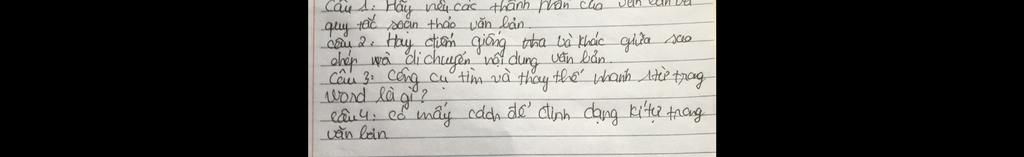 Câu 1: Hãy nêu các thành phần của văn bản và
quy tắc soạn thảo văn bản
câu 2: Hãy điểm giống nha và khác giữa sao
chép và di chuyển nội dung văn bản.
Câu 3: Công cụ tìm và thay thế nhanh từ trong
Word là gì?
câu 4: có mấy cách để định dạng kí tự trong
văn bản